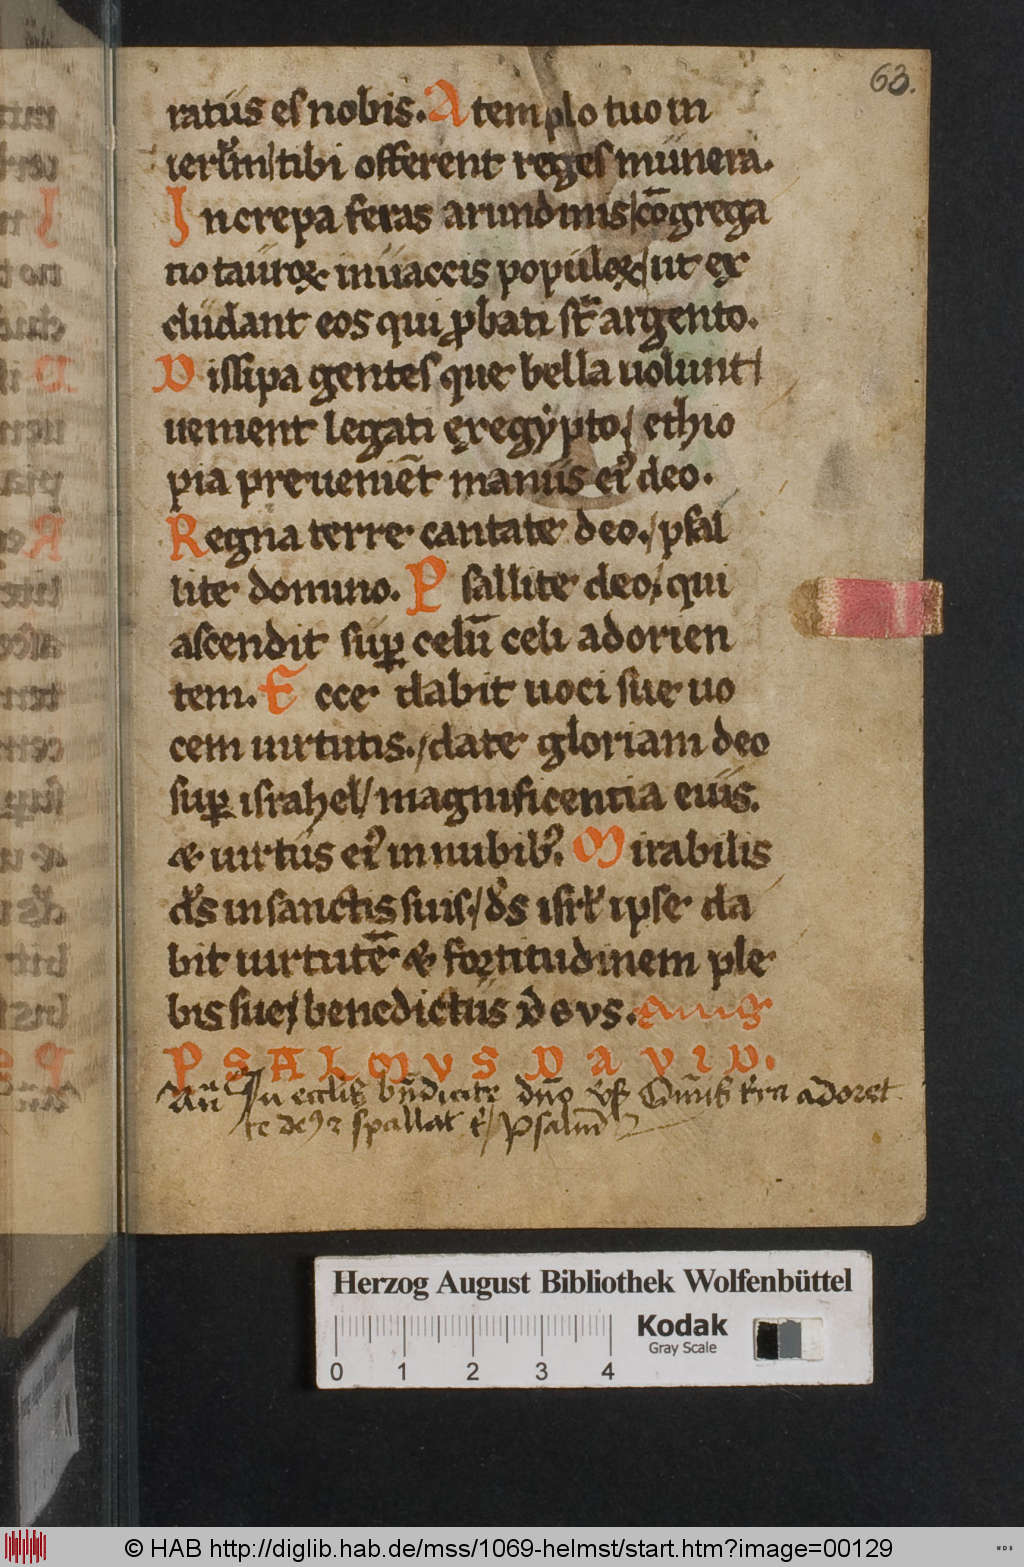 63.
ratus es nobis. A templo tuo in
ierl̄m/tibi offerent reges munera.
Increpa feras arundinis/cōgrega
tio tauroꝝ in uaccis populoꝝ/ut ex
cludant eos qui ꝓbati st̄ argento.
Dissipa gentes que bella uolunt/
uenient legati ex egypto/ ethio
pia preueniēt manus ei᷒ deo.
Regna terre cantate deo./psal
lite domino. Psallite deo/qui
ascendit suꝑ celū celi ad orien
tem. Ecce dabit uoci sue uo
cem uirtutis./date gloriam deo
suꝑ israhel/magnificentia eius.
& uirtus ei᷒ in nubib᷒. Mirabilis
ds̄ in sanctis suis./ds̄ isrl̄ ipse da
bit uirtutē & fortitudinem ple
bis sue/benedictus DEVS.
PSALMVS DAVID.
Añ In eccl̄iis bn̄dicite dño
adoret
te de᷒ ⁊ psallat t̄/Psalm̄
Herzog August Bibliothek Wolfenbüttel
0 1 2 3 4
Kodak
Gray Scale
© HAB http://diglib.hab.de/mss/1069-helmst/start.htm?image=00129